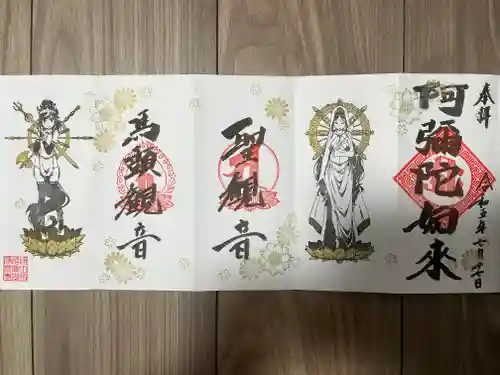 奉拝
阿彌陀如来
令和五年七月十七日
聖観音
馬頭観音